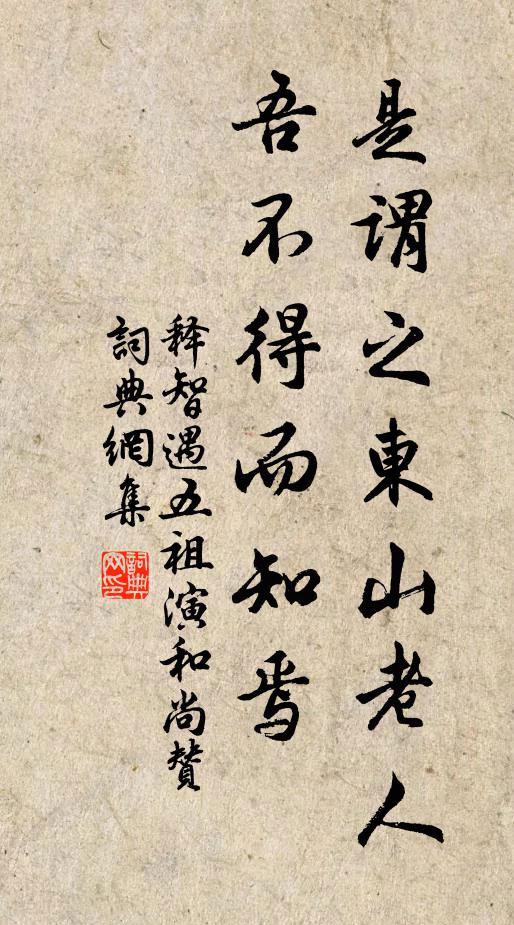 是謂之東山老人
吾不得而知焉
释智遇五祖演和尚贊
詞典網集
詞典网印